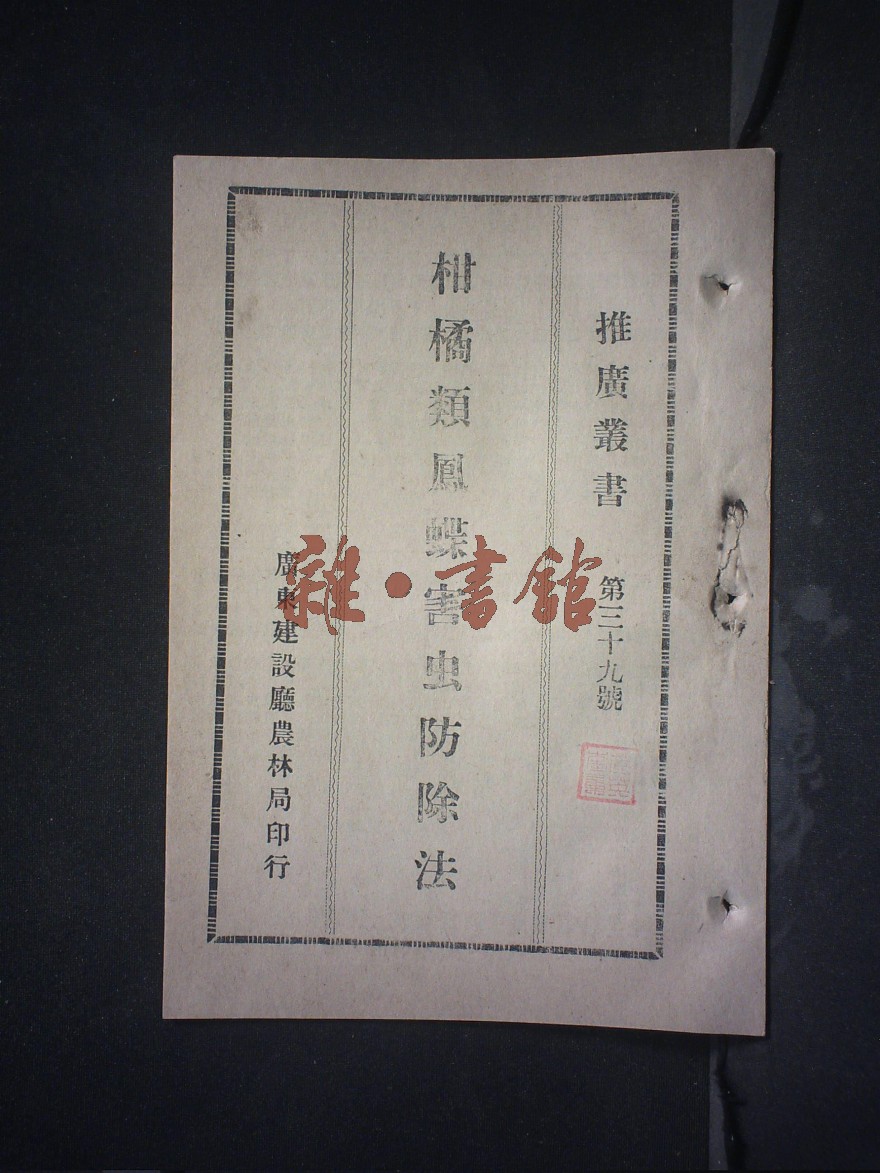 推廣叢書 第三十九號
柑橘類鳳蝶害虫防除法
廣東建設廳農林局印行
雜·書館